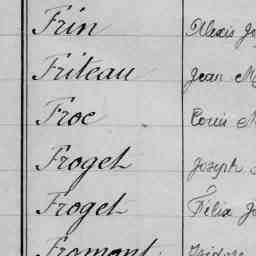 Frin Alexis
Friteau Jean M
Froc Louis M
Froget Joseph
Froget Félix
Fromont Isidore